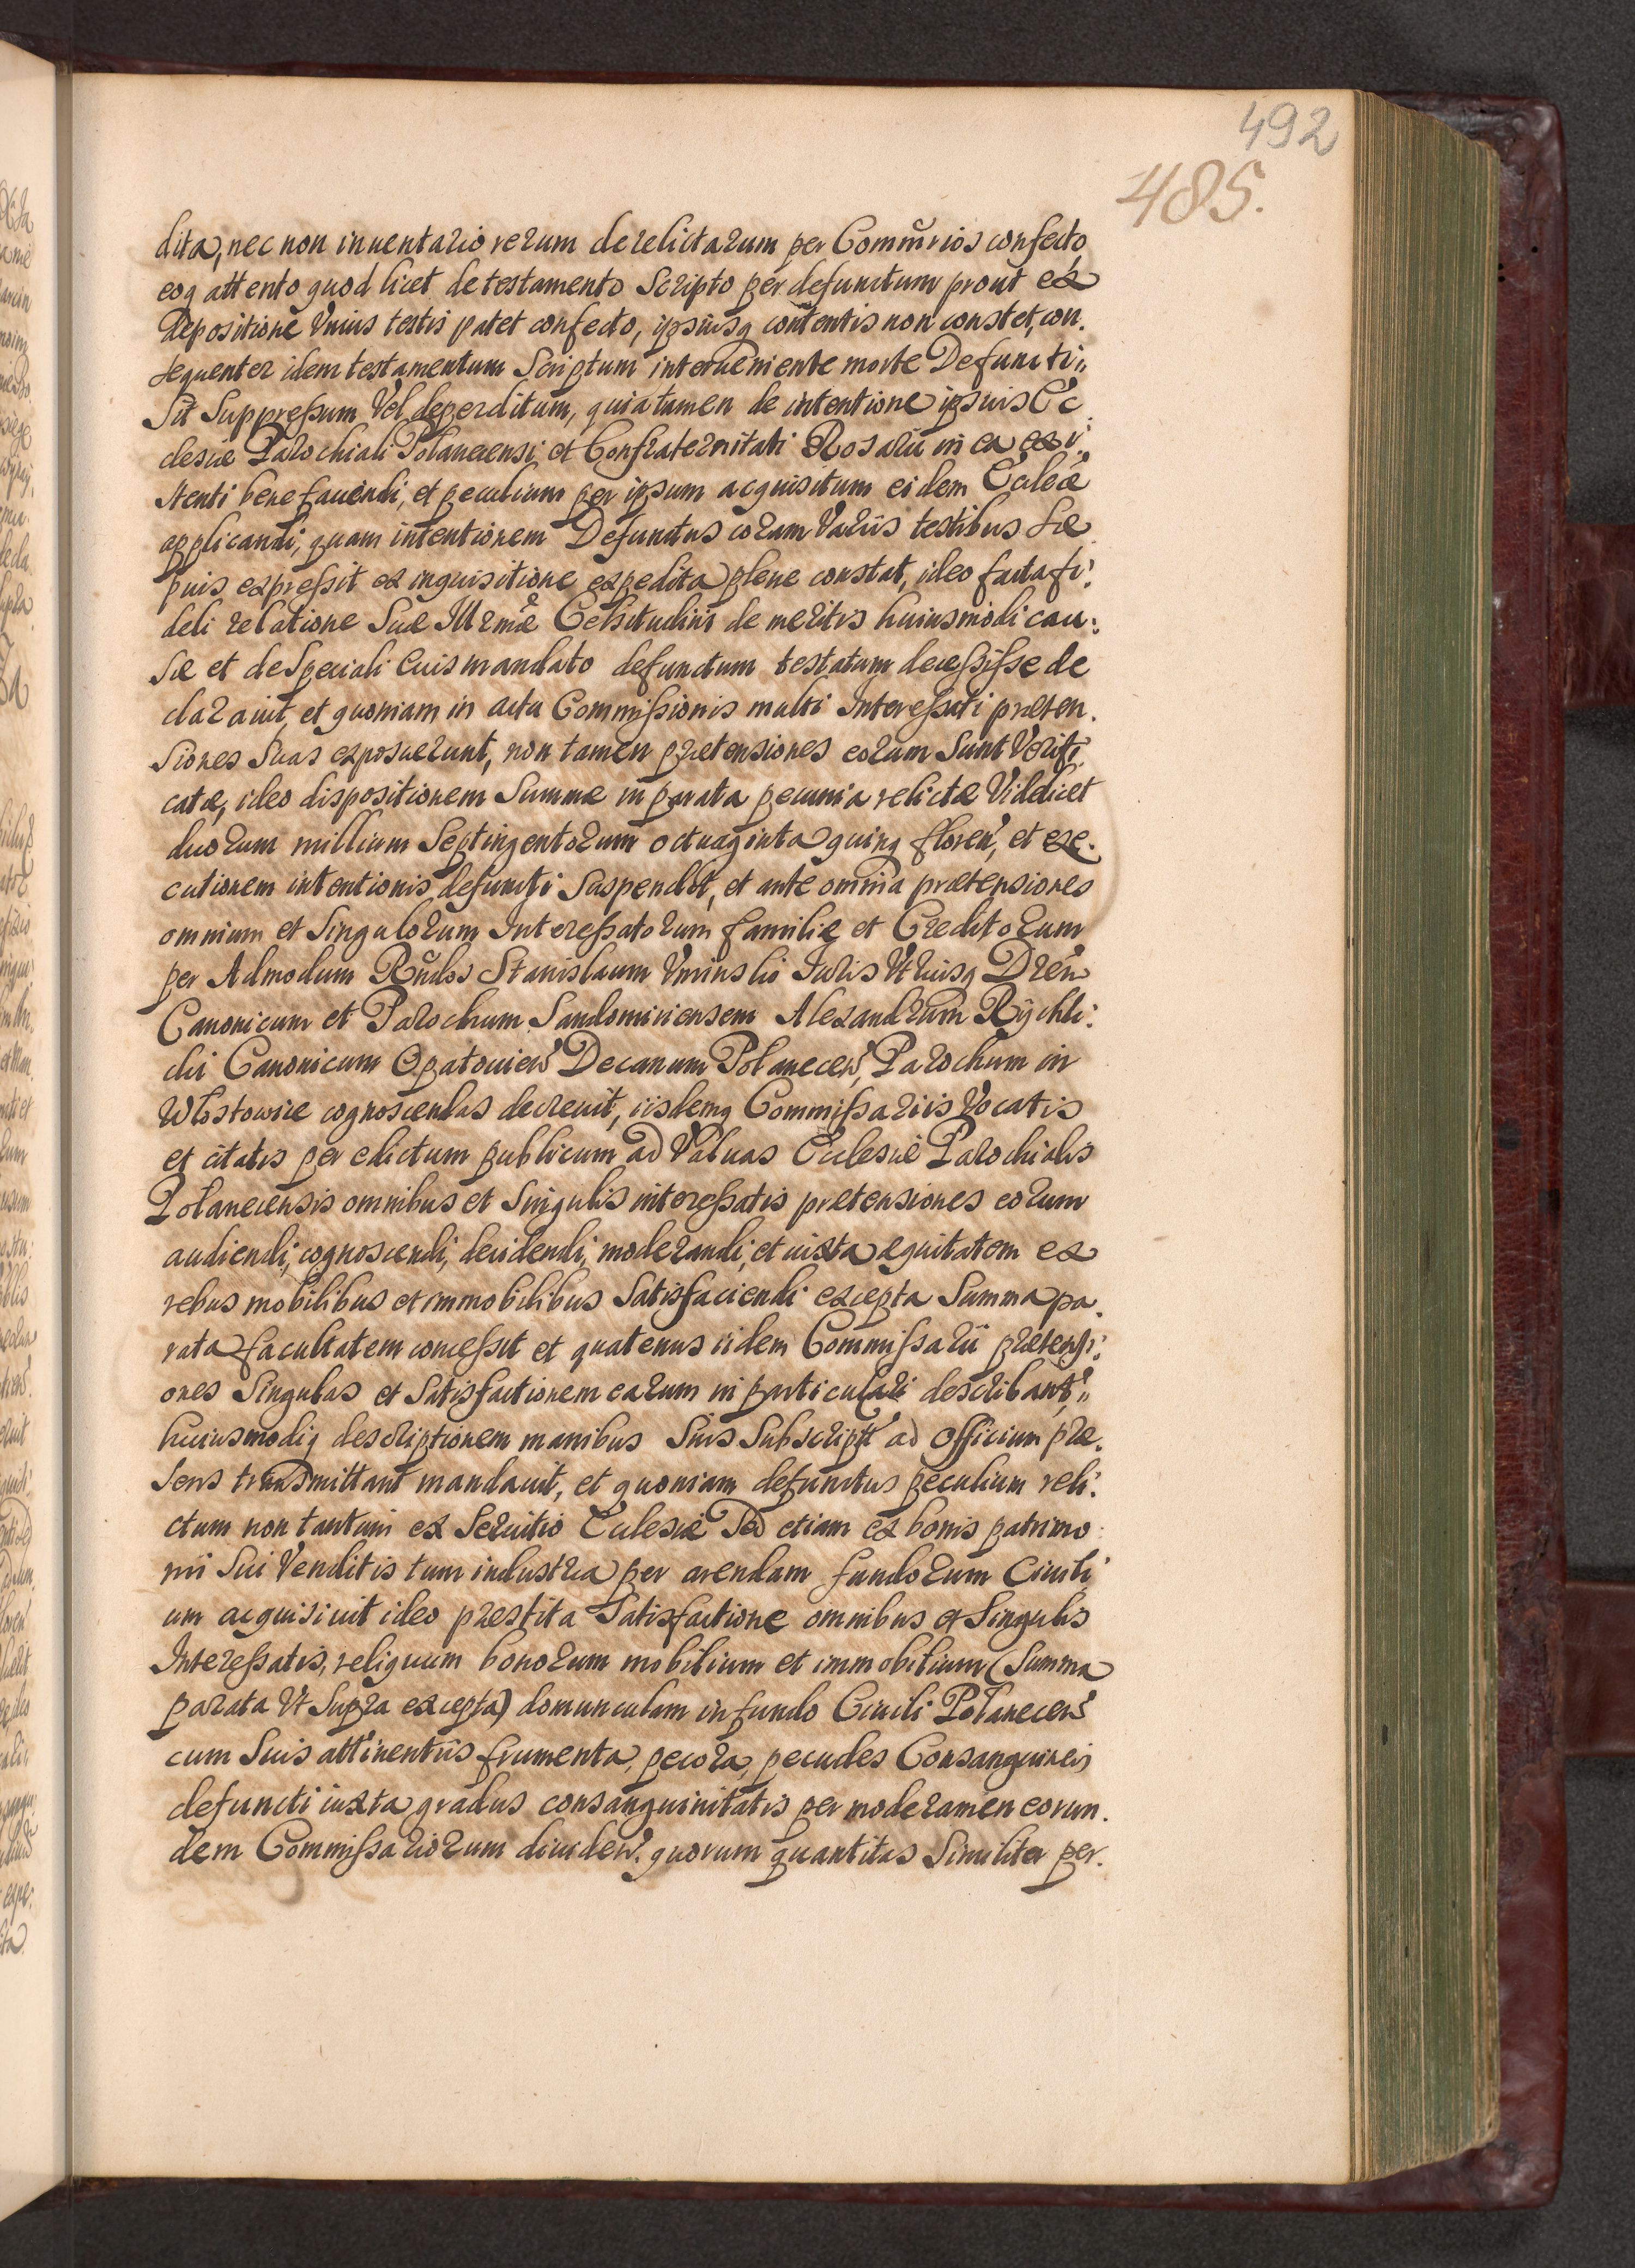 492
485.
dita, nec non inuentario rerum derelictarum per Commrios confecto,
eoq attento quod licet de testamento Scripto per defunctum prout ex
depositione Vnius testis patet confecto, ipsiusq contentis non constet, con.
sequenter idem testamentum Scriptum interueniente morte Defuncti„
Sit Suppressum Vel deperditum, quia tamen de intentione ipsius Ec
clesiæ Parochiali Połanecensi et Confraternitati Rosarii in ea exi„
stenti benefaciendi, et peculium per ipsum acquisitum eidem Ecclæ
applicandi, quam intentionem Defunctus coram Variis testibus Sæ
puis expressit ex inquisitione expedita plene constat, ideo facta fi:
deli relatione Suæ Illrmæ Celsitudini de meritis huiusmodi cau:
sæ et de Speciali Euis mandato defunctum testatum decessisse de
clarauit, et quoniam in actu Commissionis multi Interessati præten.
siones Suas exposuerunt, non tamen prætensiones eorum Sunt Verifi
catæ, ideo dispositionem Summæ in parata pecunia relictæ Videlicet
duorum millium Septingentorum octuaginta quinq floren, et exe.
cutionem intentionis defuncti Suspendit, et ante omnia prætensiones
omnium et Singulorum Interessatorum familiæ et Creditorum
per Admodum Rndos Stanislaum Vminslki Iuris Vtriusq Dren
Canonicum et Parochum Sandomiriensem Alexandrum Rÿchli:
cki Canonicum Opatouien Decanum Połanecen, Parochum in
Włostowice cognoscendas decreuit, iisdemq Commissariis Vocatis
et citatis per edictum publicum ad Valuas Ecclesiæ Parochialis
Połanecensis omnibus et Singulis interessatis prætensiones eorum
audiendi, cognoscendi, decidendi, moderandi, et iuxta æquitatem ex
rebus mobilibus et immobilibus Satisfaciendi excepta Summa pa.
rata facultatem concessit et quatenus iidem Commissarii prætensi:
ones Singulas et Satisfactionem earum in particulari describant,„
huiusmodiq descriptionem manibus Suis Subscript ad officium præ.
sens transmittant mandauit, et quoniam defunctus peculium reli:
ctum non tantum ex Seruitio Ecclesiæ Sed etiam ex bonis patrimo:
nii Sui Venditis tum industria per arendam fundorum Ciuili
um acquisiuit ideo præstita Satisfactione omnibus et Singulis
Interessatis, reliquum bonorum mobilium et immobilium (Summa
parata Vt Supra excepta) domunculam in fundo Ciuili Połanecen
cum Suis attinentiis frumenta, pecora, pecudes Consanguineis
defuncti iuxta gradus consanguinitatis per moderamen eorun.
dem Commissariorum diuiden. quorum quantitas Similiter per.